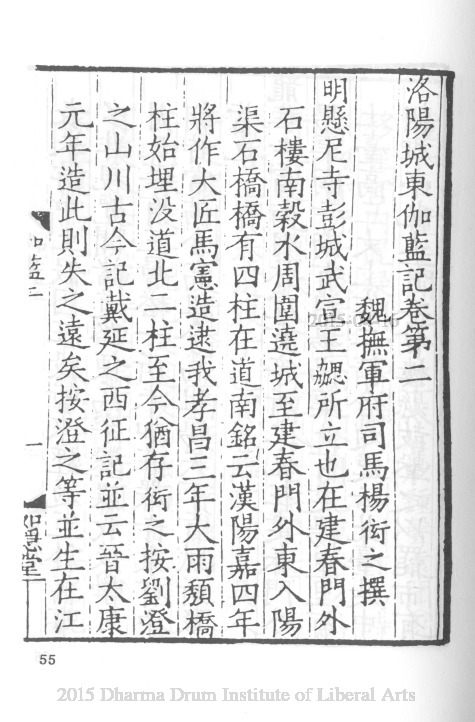 洛陽城東伽藍記卷第二
魏撫軍府司馬楊衒之撰
明懸尼寺彭城武宣王勰所立也在建春門外
石樓南穀水周圍遶城至建春門外東入陽
渠石橋橋有四柱在道南銘云漢陽嘉四年
將作大匠馬憲造逮我孝昌三年大雨頹橋
柱始埋没道北二柱至今猶存衒之按劉澄
之山川古今記戴延之西征記並云晉太康
元年造此則失之遠矣按澄之等並生在江
一
如隱堂
55
2015 Dharma Drum Institute of Liberal Arts